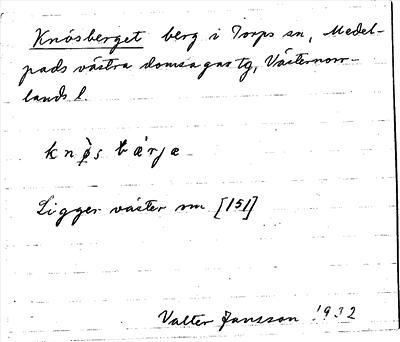 Knösberget berg i Torps sn, Medel-
pads västra domsagas tg, Västernorr-
lands l.
knø̀s bærja
Ligger väster om [151]
Valter Jansson 1932